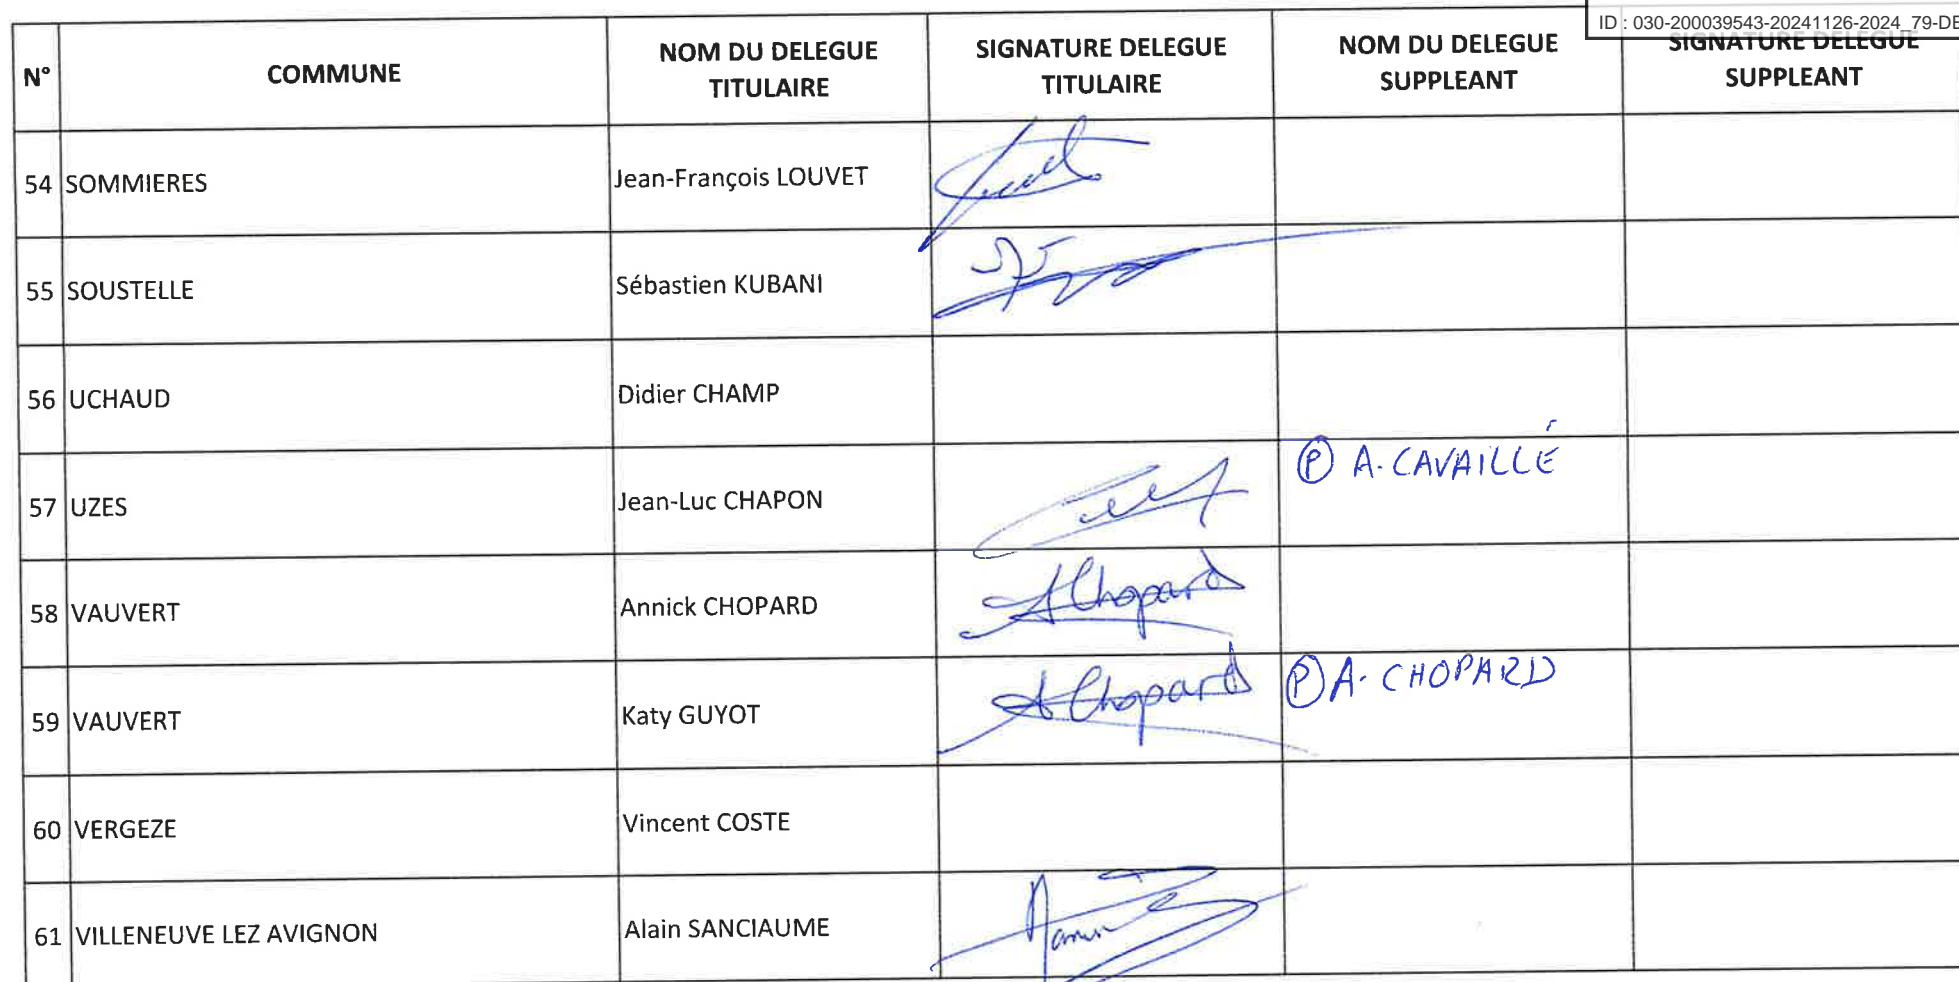 ID : 030-200039543-20241126-2024_79-DE
N° COMMUNE NOM DU DELEGUE TITULAIRE SIGNATURE DELEGUE TITULAIRE NOM DU DELEGUE SUPPLEANT SIGNATURE DELEGUE SUPPLEANT
54 SOMMIERES Jean-François LOUVET
55 SOUSTELLE Sébastien KUBANI
56 UCHAUD Didier CHAMP
57 UZES Jean-Luc CHAPON Ⓟ A. CAVAILLÉ
58 VAUVERT Annick CHOPARD AChopard
59 VAUVERT Katy GUYOT AChopard Ⓟ A. CHOPARD
60 VERGEZE Vincent COSTE
61 VILLENEUVE LEZ AVIGNON Alain SANCIAUME